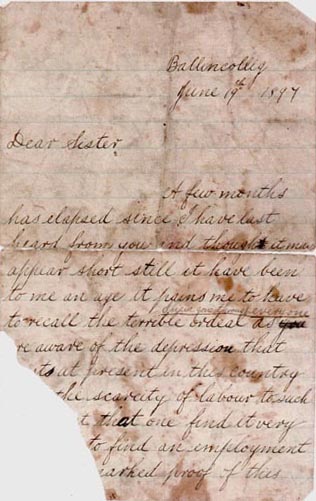 Ballincolly
June 19th 1897
Dear Sister,
A few months
has elapsed since I have last
heard from you and thought it may
appear short still it have been
to me an age it pains me to have
to recall the terrible ordeal as you
every one
re aware of the depression that
at present in this country
the scarcity of labour to such
that one find it very
to find an employment
marked proof of this